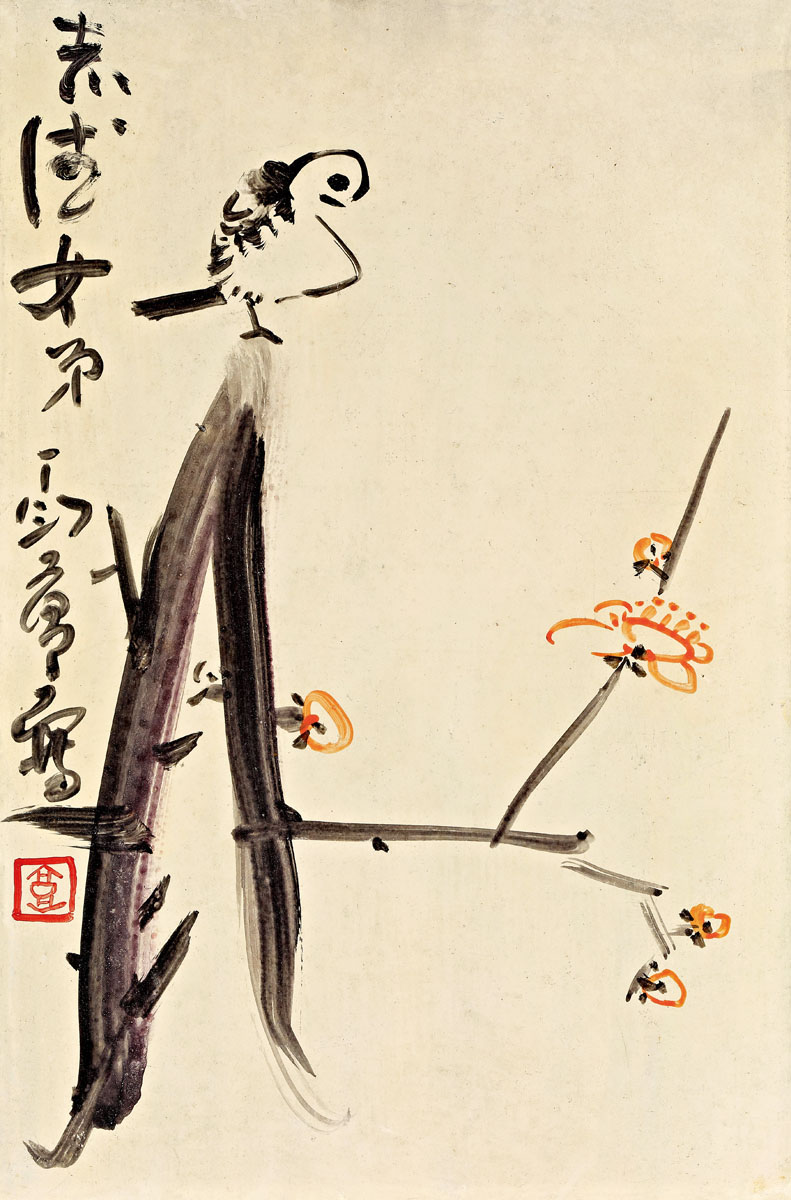 志女弟 丁衍庸寫